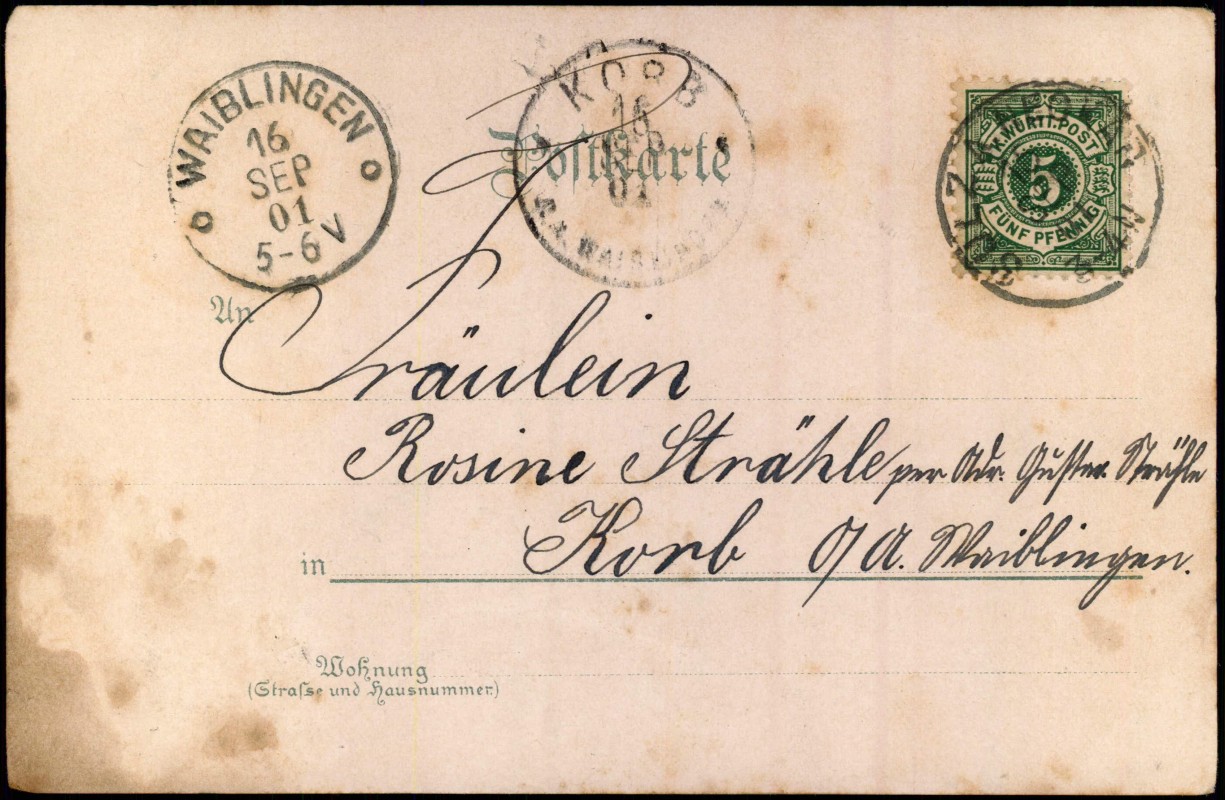 WAIBLINGEN
16
SEP
01
5-6V
KORB
16
SEP
01
O.A. WAIBLINGEN
K. WÜRTT. POST
5
FÜNF PFENNIG
Postkarte
An
Fräulein
Rosine Strähle per Adr. Gustav Strähle
in Korb O/A. Waiblingen.
Wohnung
(Strasse und Hausnummer)